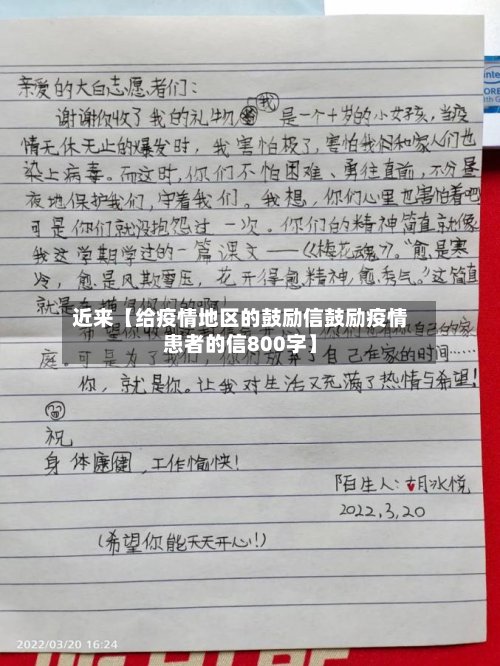 亲爱的大白志愿者们：
谢谢你收了我的礼物 我 是一个十岁的小女孩，当疫
情无休无止的爆发时，我害怕极了，害怕我们和家人们也
染上病毒。而这时，你们不怕困难、勇往直前，不分昼
夜地保护我们，守着我们。我想，你们心里也害怕着吧
可是你们就没抱怨过一次。你们的精神简直就像
我这学期学过的一篇课文——《梅花魂》。“愈是寒
冷，愈是风欺雪压，花开得愈精神，愈秀气。”这简直
就是在
近来【给疫情地区的鼓励信鼓励疫情
患者的信800字】
自己的家
庭。可是为了我们，你们放弃了自己在家的时间……
你，就是你。让我对生活又充满了热情与希望！
祝
身体康健，工作愉快！
陌生人：胡冰悦
2022.3.20
（希望你能天天开心！）
2022/03/20 16:24
intel
CORE